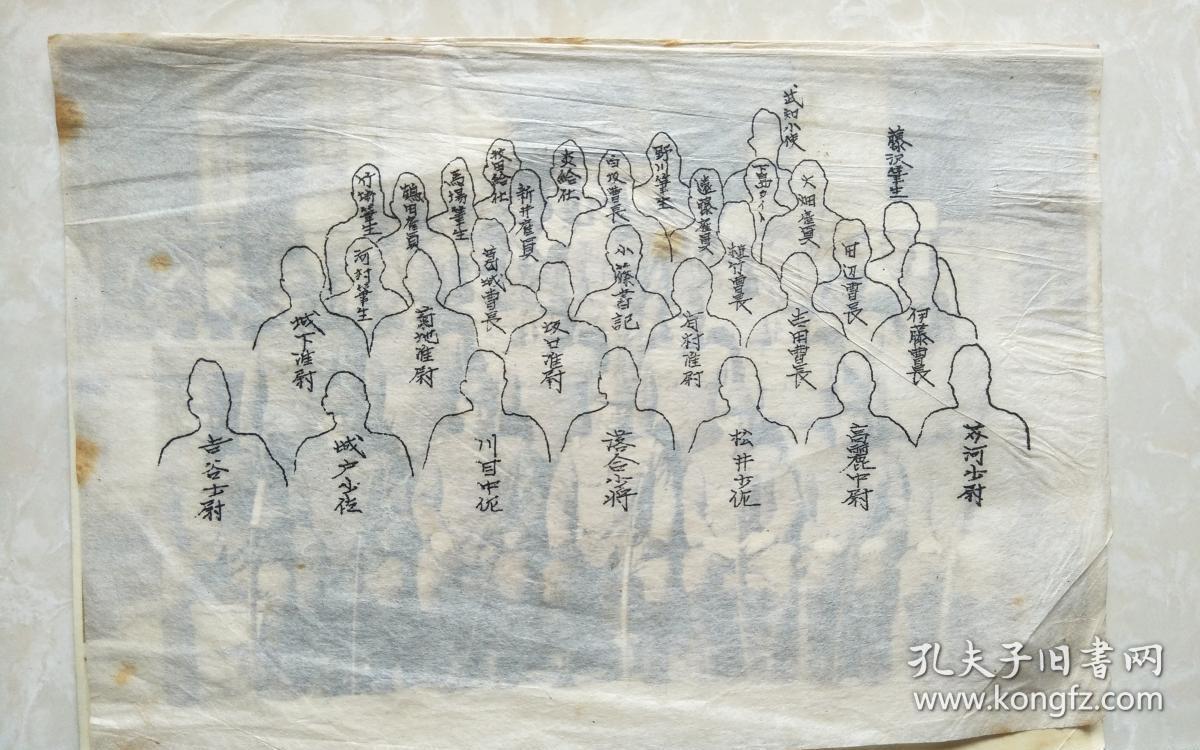 武知小使
藤沢筆生
牧田給仕
野川筆生
馬場筆生
新井雇員
白坂曹長
遠藤雇員
大畑雇員
鶴田雇員
河村筆生
葛城曹長
小藤書記
植竹曹長
田辺曹長
城下准尉
菊地准尉
坂口准尉
有村准尉
吉田曹長
伊藤曹長
吉谷士尉
城戸少佐
川目中佐
落合少将
松井少佐
高麗中尉
河少尉
孔夫子旧书网
www.kongfz.com